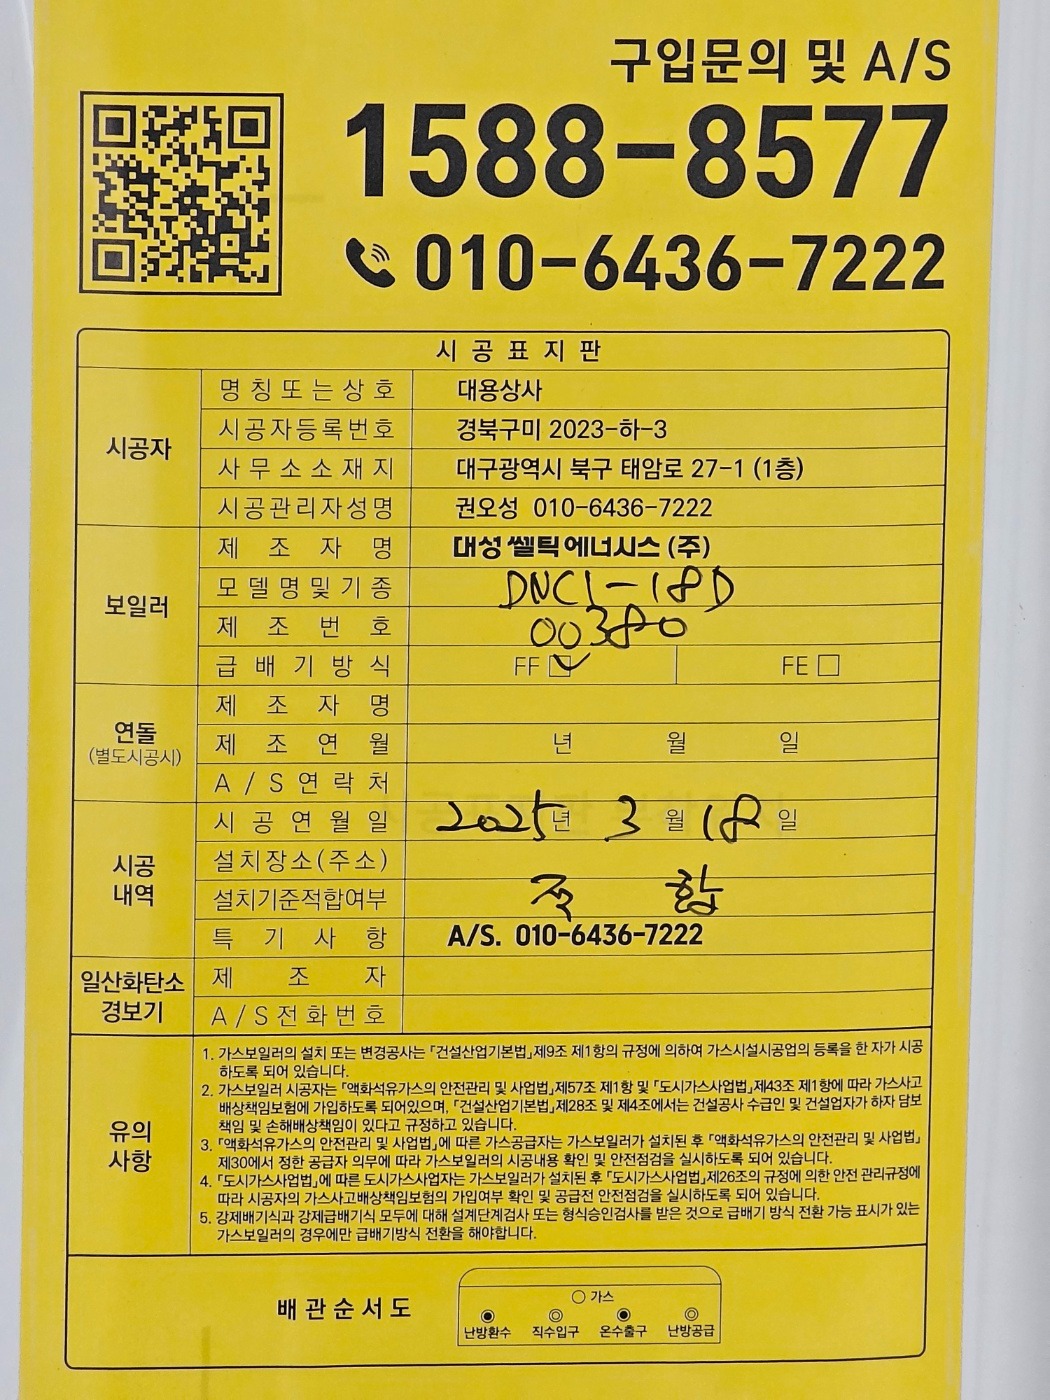 구입문의 및 A/S
1588-8577
010-6436-7222
시 공 표 지 판
시공자
명 칭 또 는 상 호 대용상사
시공자등록번호 경북구미 2023-하-3
사 무 소 소 재 지 대구광역시 북구 태암로 27-1 (1층)
시공관리자성명 권오성 010-6436-7222
보일러
제 조 자 명 대성쎌틱에너시스 (주)
모델명및기종 DNC1-18D
제 조 번 호 00380
급 배 기 방 식 FF ☑ FE □
연돌
(별도시공시)
제 조 자 명
제 조 연 월 년 월 일
A / S 연 락 처
시공
내역
시 공 연 월 일 2025년 3월 18일
설치장소(주소)
설치기준적합여부 적 합
특 기 사 항 A/S. 010-6436-7222
일산화탄소
경보기
제 조 자
A / S 전 화 번 호
유의
사항
1. 가스보일러의 설치 또는 변경공사는 「건설산업기본법」제9조 제1항의 규정에 의하여 가스시설시공업의 등록을 한 자가 시공
하도록 되어 있습니다.
2. 가스보일러 시공자는 「액화석유가스의 안전관리 및 사업법」제57조 제1항 및 「도시가스사업법」제43조 제1항에 따라 가스사고
배상책임보험에 가입하도록 되어있으며, 「건설산업기본법」제28조 및 제4조에서는 건설공사 수급인 및 건설업자가 하자 담보
책임 및 손해배상책임이 있다고 규정하고 있습니다.
3. 「액화석유가스의 안전관리 및 사업법」에 따른 가스공급자는 가스보일러가 설치된 후 「액화석유가스의 안전관리 및 사업법」
제30에서 정한 공급자 의무에 따라 가스보일러의 시공내용 확인 및 안전점검을 실시하도록 되어 있습니다.
4. 「도시가스사업법」에 따른 도시가스사업자는 가스보일러가 설치된 후 「도시가스사업법」제26조의 규정에 의한 안전 관리규정에
따라 시공자의 가스사고배상책임보험의 가입여부 확인 및 공급전 안전점검을 실시하도록 되어 있습니다.
5. 강제배기식과 강제급배기식 모두에 대해 설계단계검사 또는 형식승인검사를 받은 것으로 급배기 방식 전환 가능 표시가 있는
가스보일러의 경우에만 급배기방식 전환을 해야합니다.
배 관 순 서 도
가스
난방환수 직수입구 온수출구 난방공급